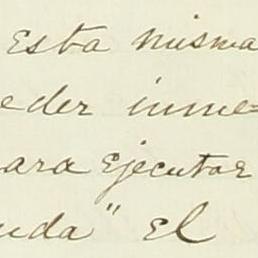 Esta misma
eder inme=
ara ejecutar
uda" el